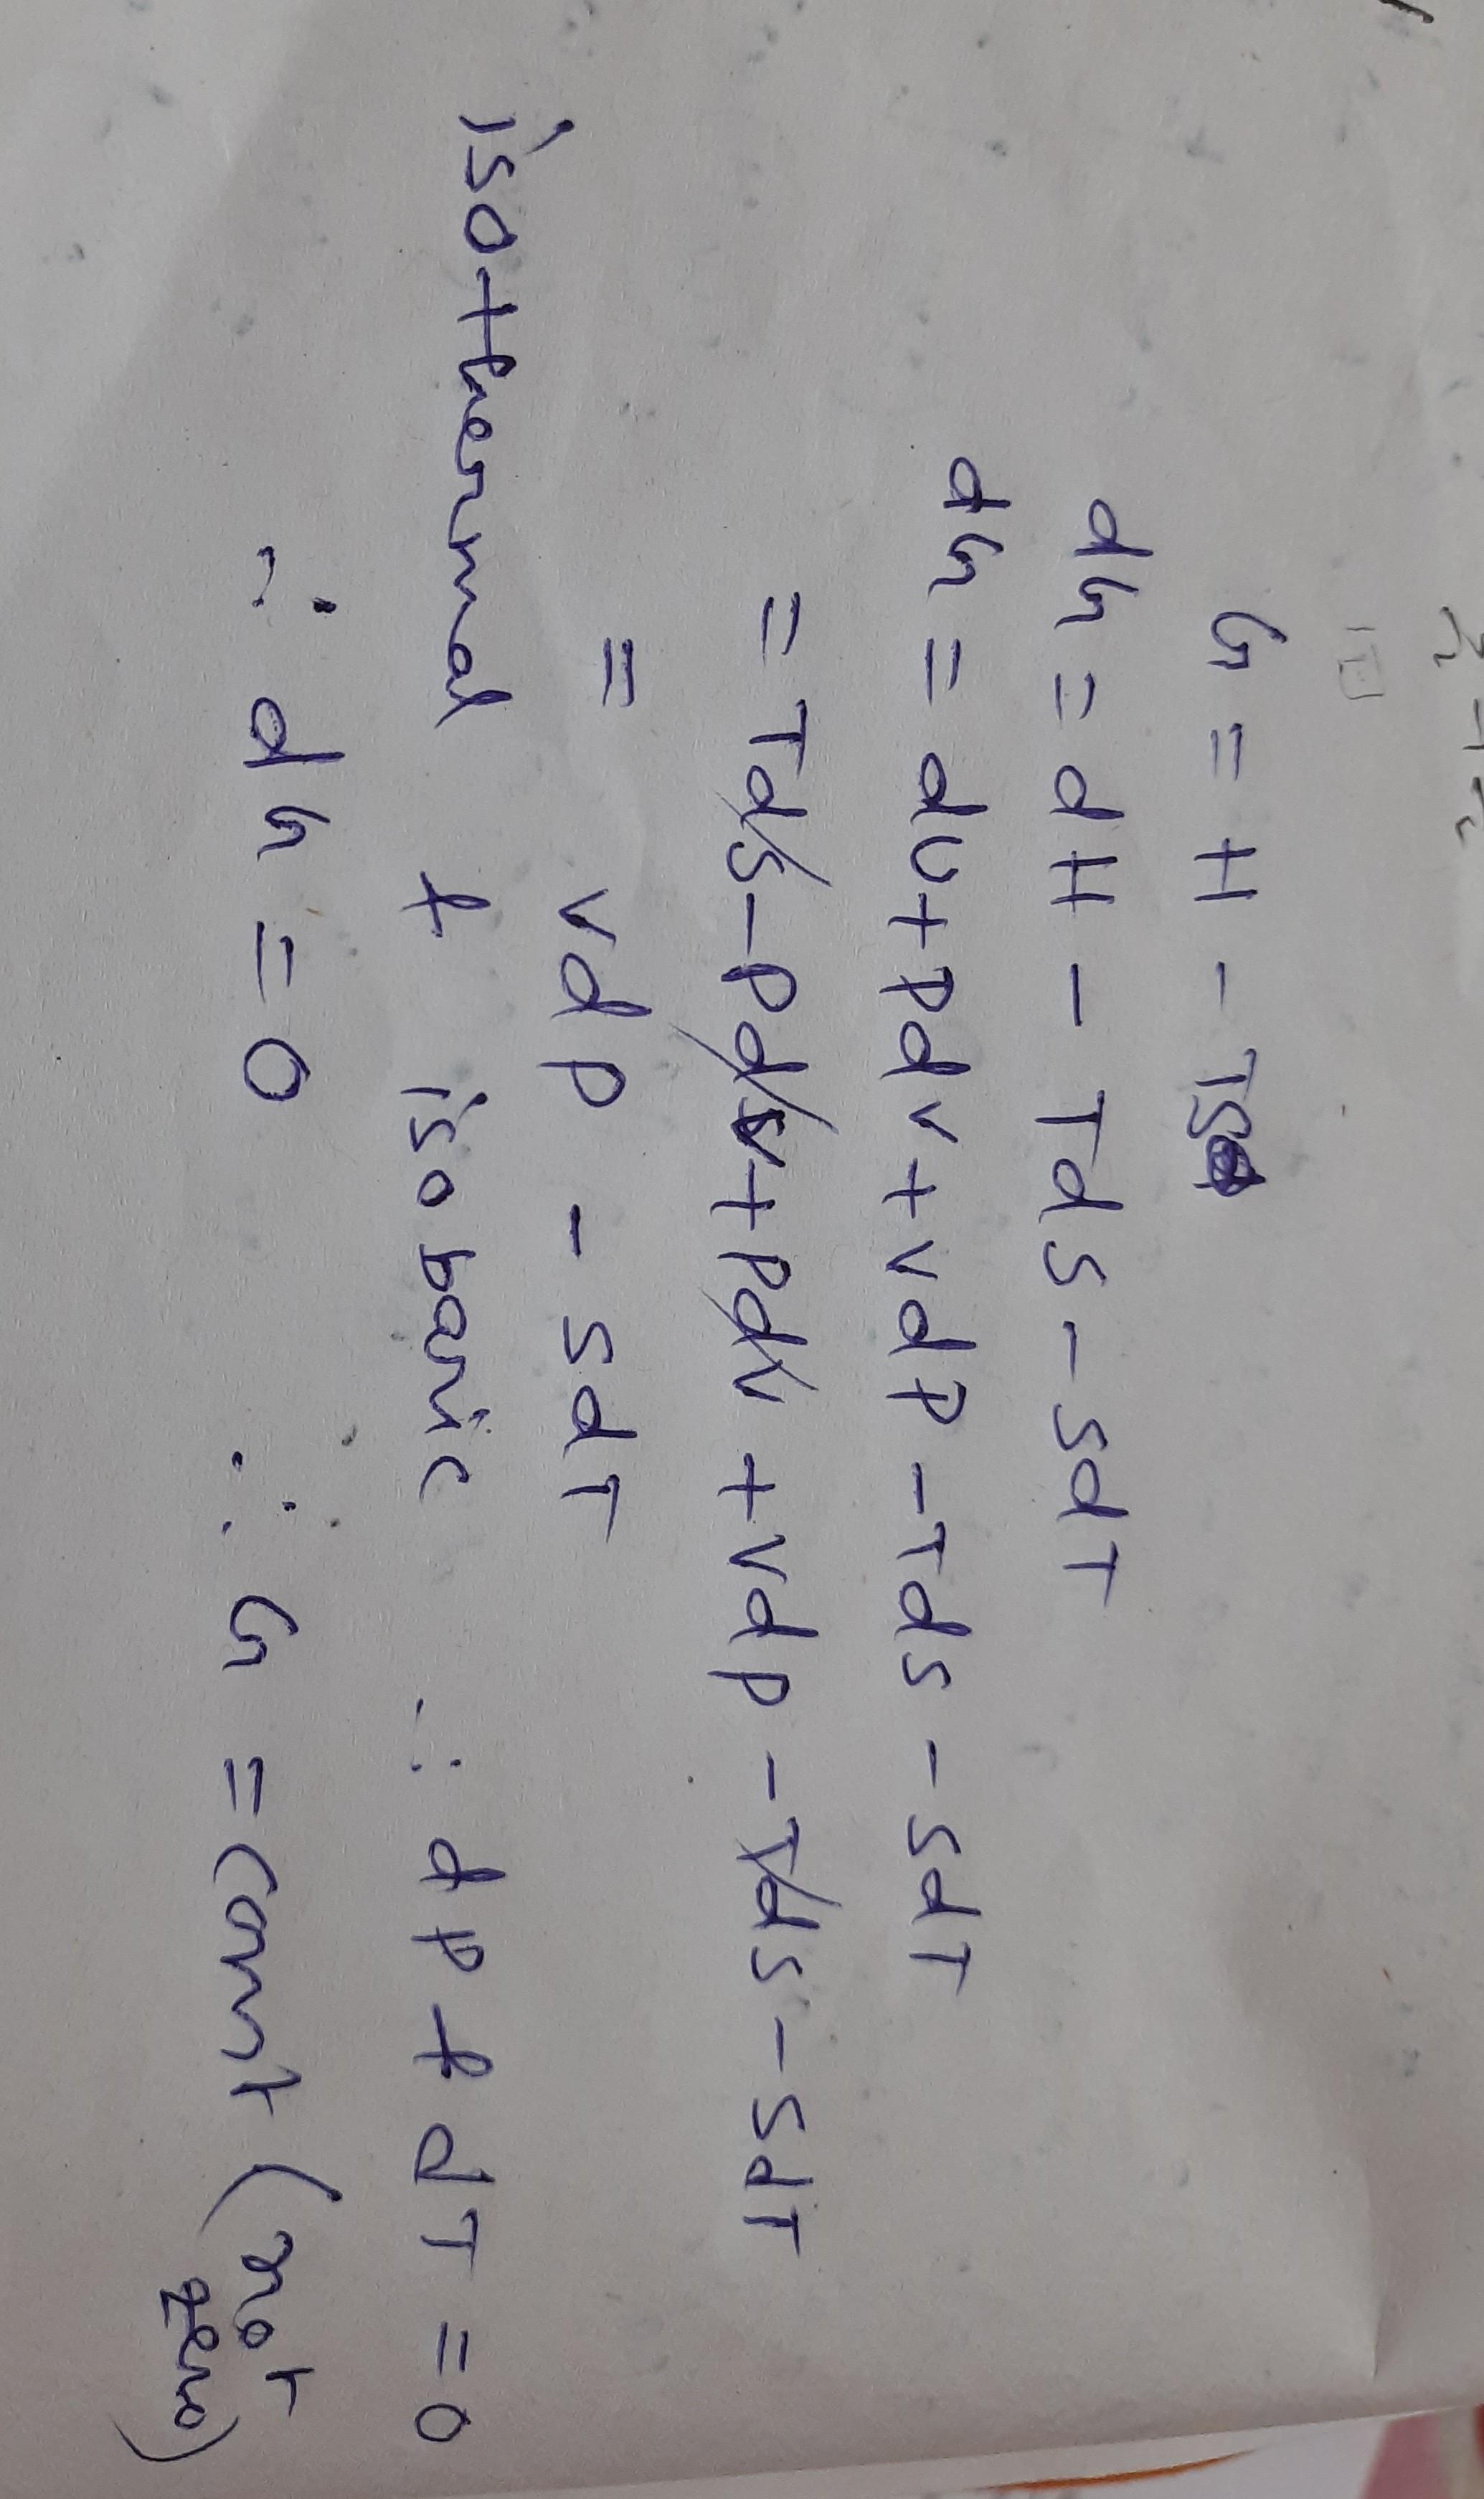 G = H - TS
dG = dH - TdS - SdT
dG = dU + PdV + VdP - TdS - SdT
= TdS - PdV + PdV + VdP - TdS - SdT
= VdP - SdT
isothermal & isobaric ∴ dP & dT = 0
∴ dG = 0 ∴ G = const (not zero)